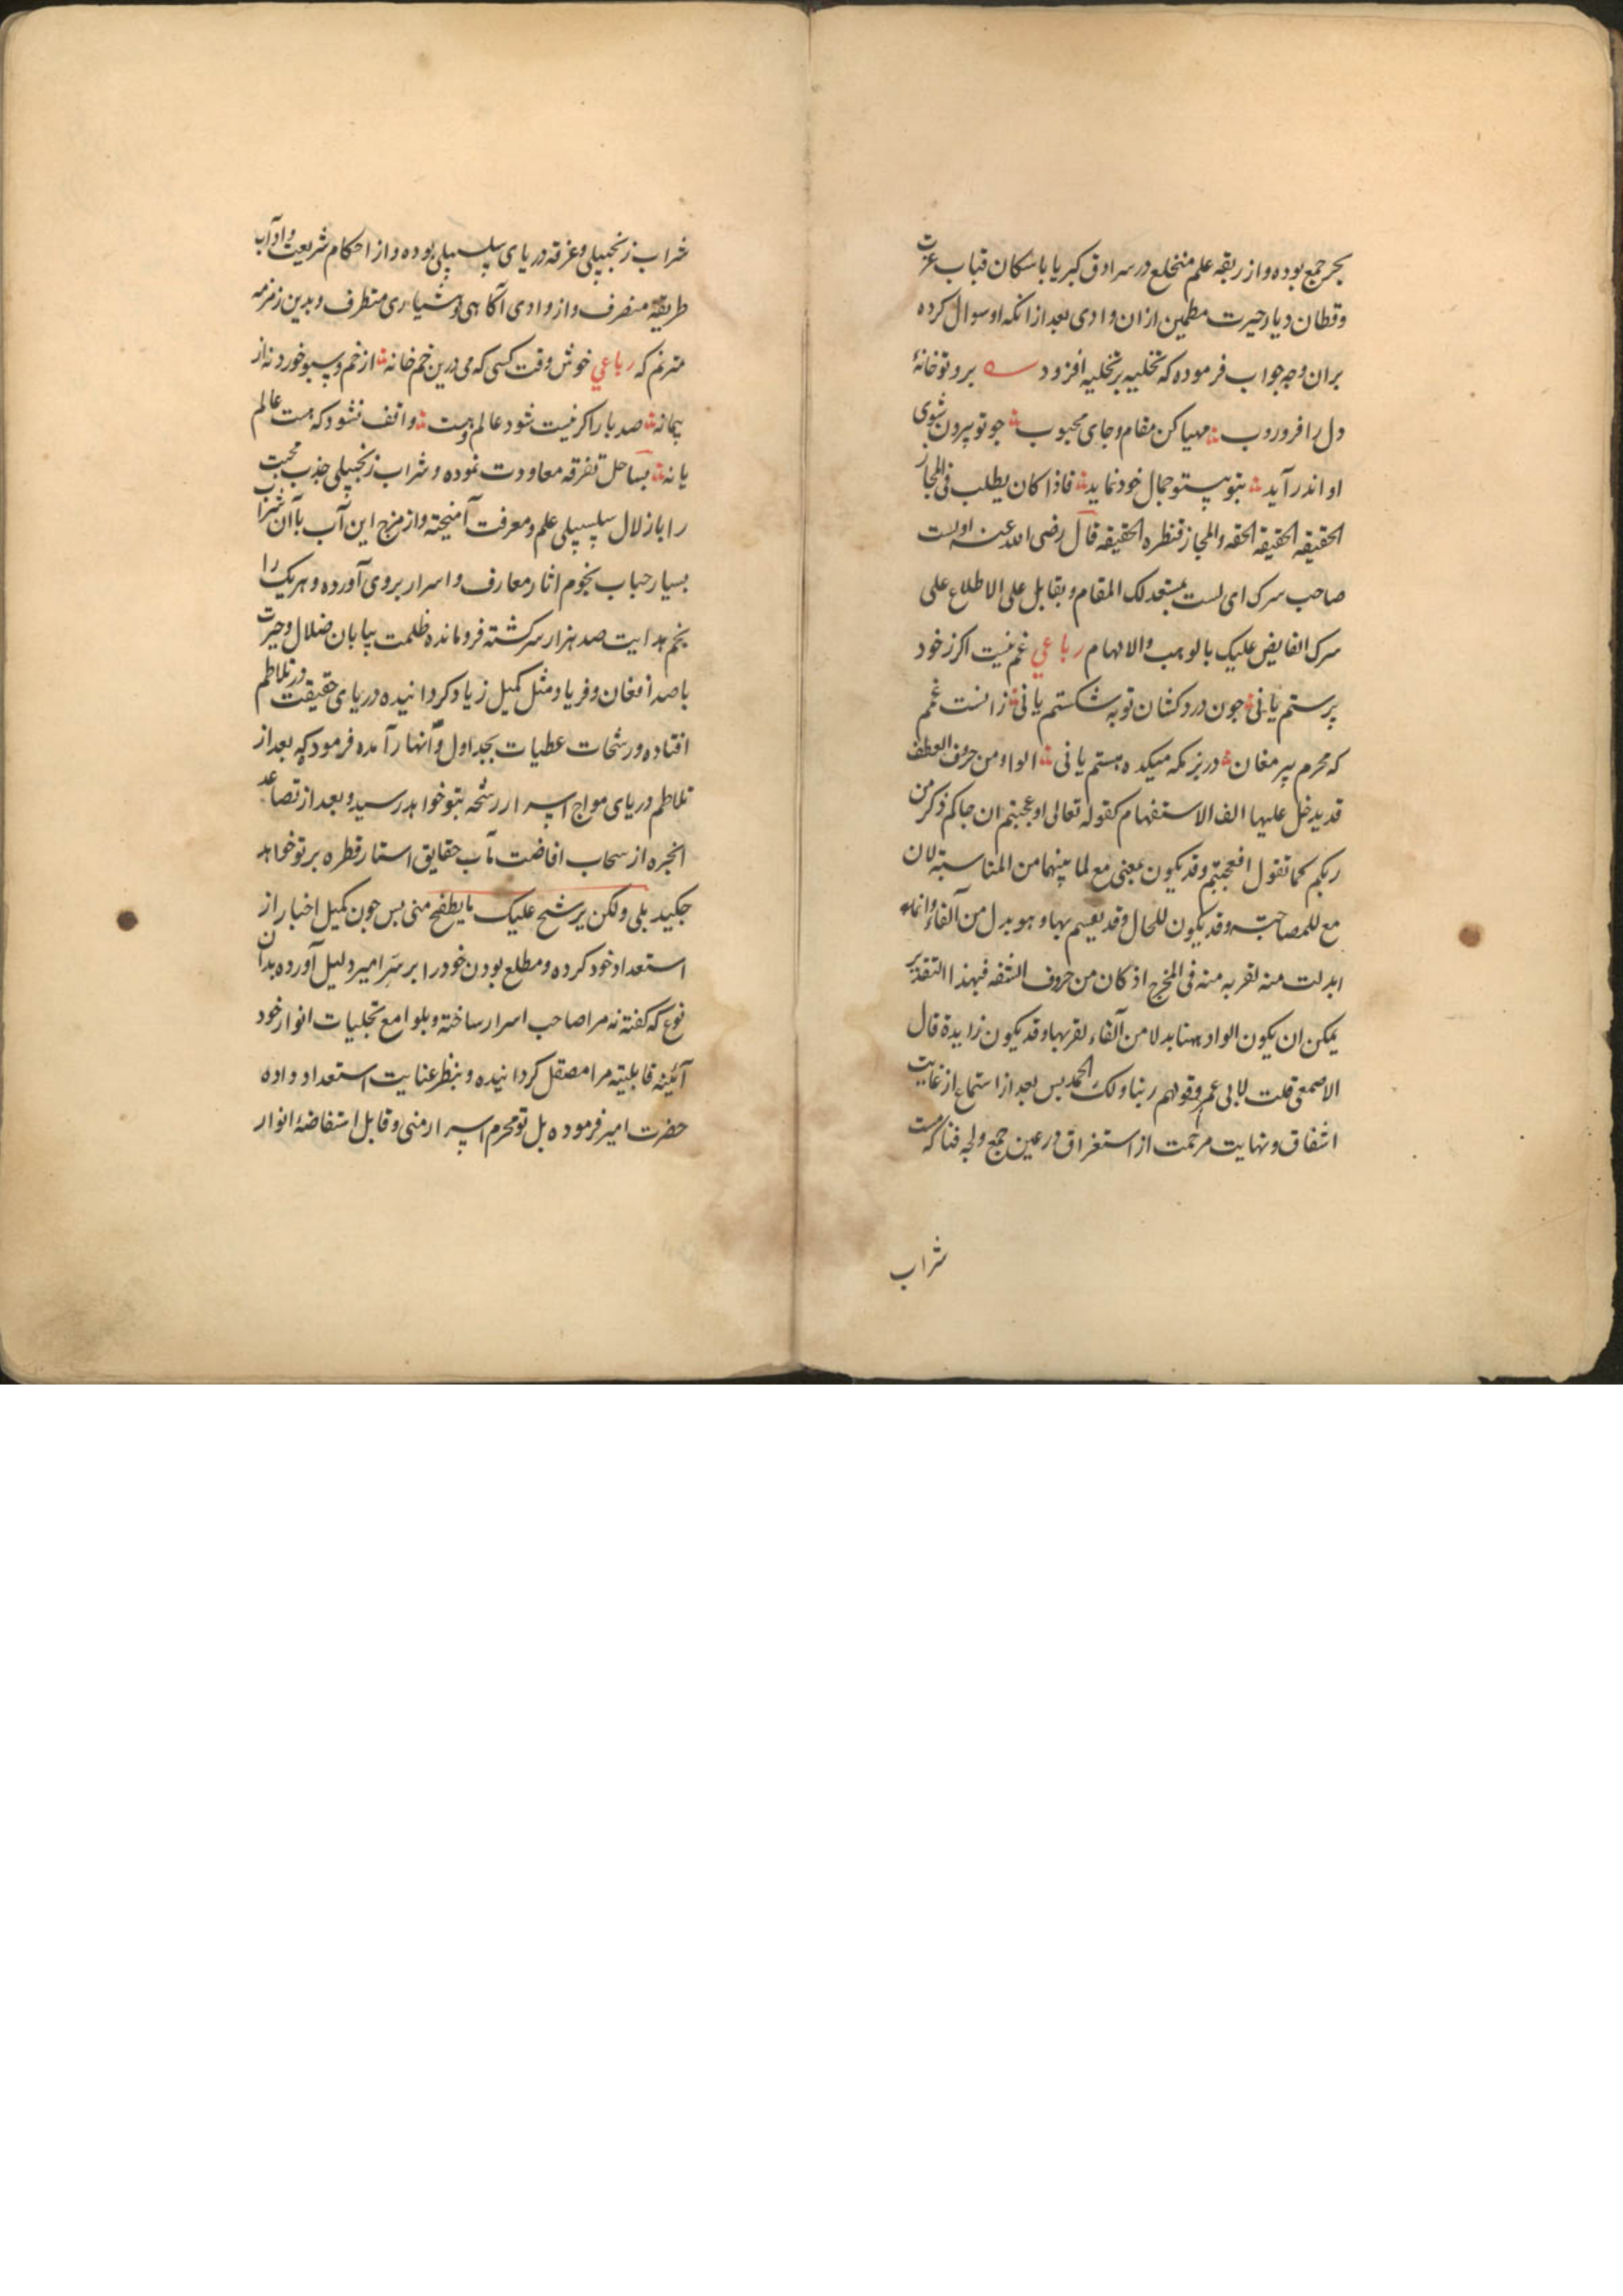 بحر جمع بوده و از ربقه علم منخلع در سرادق کبریا با سکان قباب عزت
وقطان دیار حیرت مطمین ازان وادی بعد از انکه او سوال کرده
بران وجه جواب فرموده که تخلیه بر تخلیه افزود برو تو خانهٔ
دل را فرو روب مهیا کن مقام و جای محبوب جو تو بیرون شوی
او اندر آید بتو بیتو جمال خود نماید فاذا کان یطلب فی المجاز
الحقیقه الحقیقه الحقه والمجاز قنطره الحقیقه قال رضی الله عنه اولست
صاحب سرک ای لست بمستعد لک المقام و بقابل علی الاطلاع علی
سرک الفایض علیک بالوهب والالهام رباعي غم نیست اکر ز خود
پرستم یا نی جون درد کشان توبه شکستم یا نی زانست غمم
که محرم پیر مغان در بزمکه میکده هستم یا نی الواو من حرف العطف
قد یدخل علیها الف الاستفهام کقوله تعالی او عجبتم ان جاکم ذکر من
ربکم کما تقول افعجبتم وقد یکون بمعنی مع لما بینهما من المناسبته لان
مع للمصاحبته وقد یکون للحال وقد یقسم بها و هو بدل من الفاء وانما
ابدلت منه لقربه منه فی المخرج اذ کان من حروف الشفه فبهذا التقدیر
یمکن ان یکون الواو ههنا بدلا من الفاء لقربها وقد یکون زایدة قال
الاصمعی قلت لابی عمرو قولهم ربنا ولک الحمد بس بعد از استماع از غایت
اشفاق و نهایت مرحمت از استغراق در عین جمع و لجه فنا که مست
شراب
شراب زنجبیلی و غرقه دریای سلسبیلی بوده و از احکام شریعت و اداب
طریقة منصرف و از وادی آکاهی و هشیاری متطرف و بدین زمزمه
مترنم که رباعي خوش وقت کسی که می درین خم خانه از خم و سبو خورد نه از
پیمانه صد بار اکر نیست شود عالم و هست واقف نشود که هست عالم
یا نه بساحل تفرقه معاودت نموده و شراب زنجبیلی جذب محبت
را باز لال سلسبیلی علم و معرفت آمیخته و از مزج این آب با آن شراب
بسیار حباب نجوم اثار معارف و اسرار بروی آورده و هریک را
نجم هدایت صد هزار سرکشته فرومانده ظلمت بیابان ضلال و حیرت
با صد افغان و فریاد مثل کمیل زیاد کردانیده دریای حقیقت در تلاطم
افتاده و رشحات عطیات بجداول و آنهار آمده فرمود که بعد از
تلاطم دریای مواج اسرار رشحه بتو خواهد رسید و بعد از تصاعد
انجره از سحاب افاضت مآب حقایق استار قطره بر تو خواهد
جکید بلی ولکن یرشح علیک ما یطفح منی بس جون کمیل اخبار از
استعداد خود کرده و مطلع بودن خود را بر سر امیر دلیل آورده بدان
نوع که کفته نه مرا صاحب اسرار ساخته و بلوامع تجلیات انوار خود
آئینه قابلیته مرا مصقل کردانیده و بنظر عنایت استعداد داده
حضرت امیر فرموده بل تو محرم اسرار منی و قابل استفاضهٔ انوار